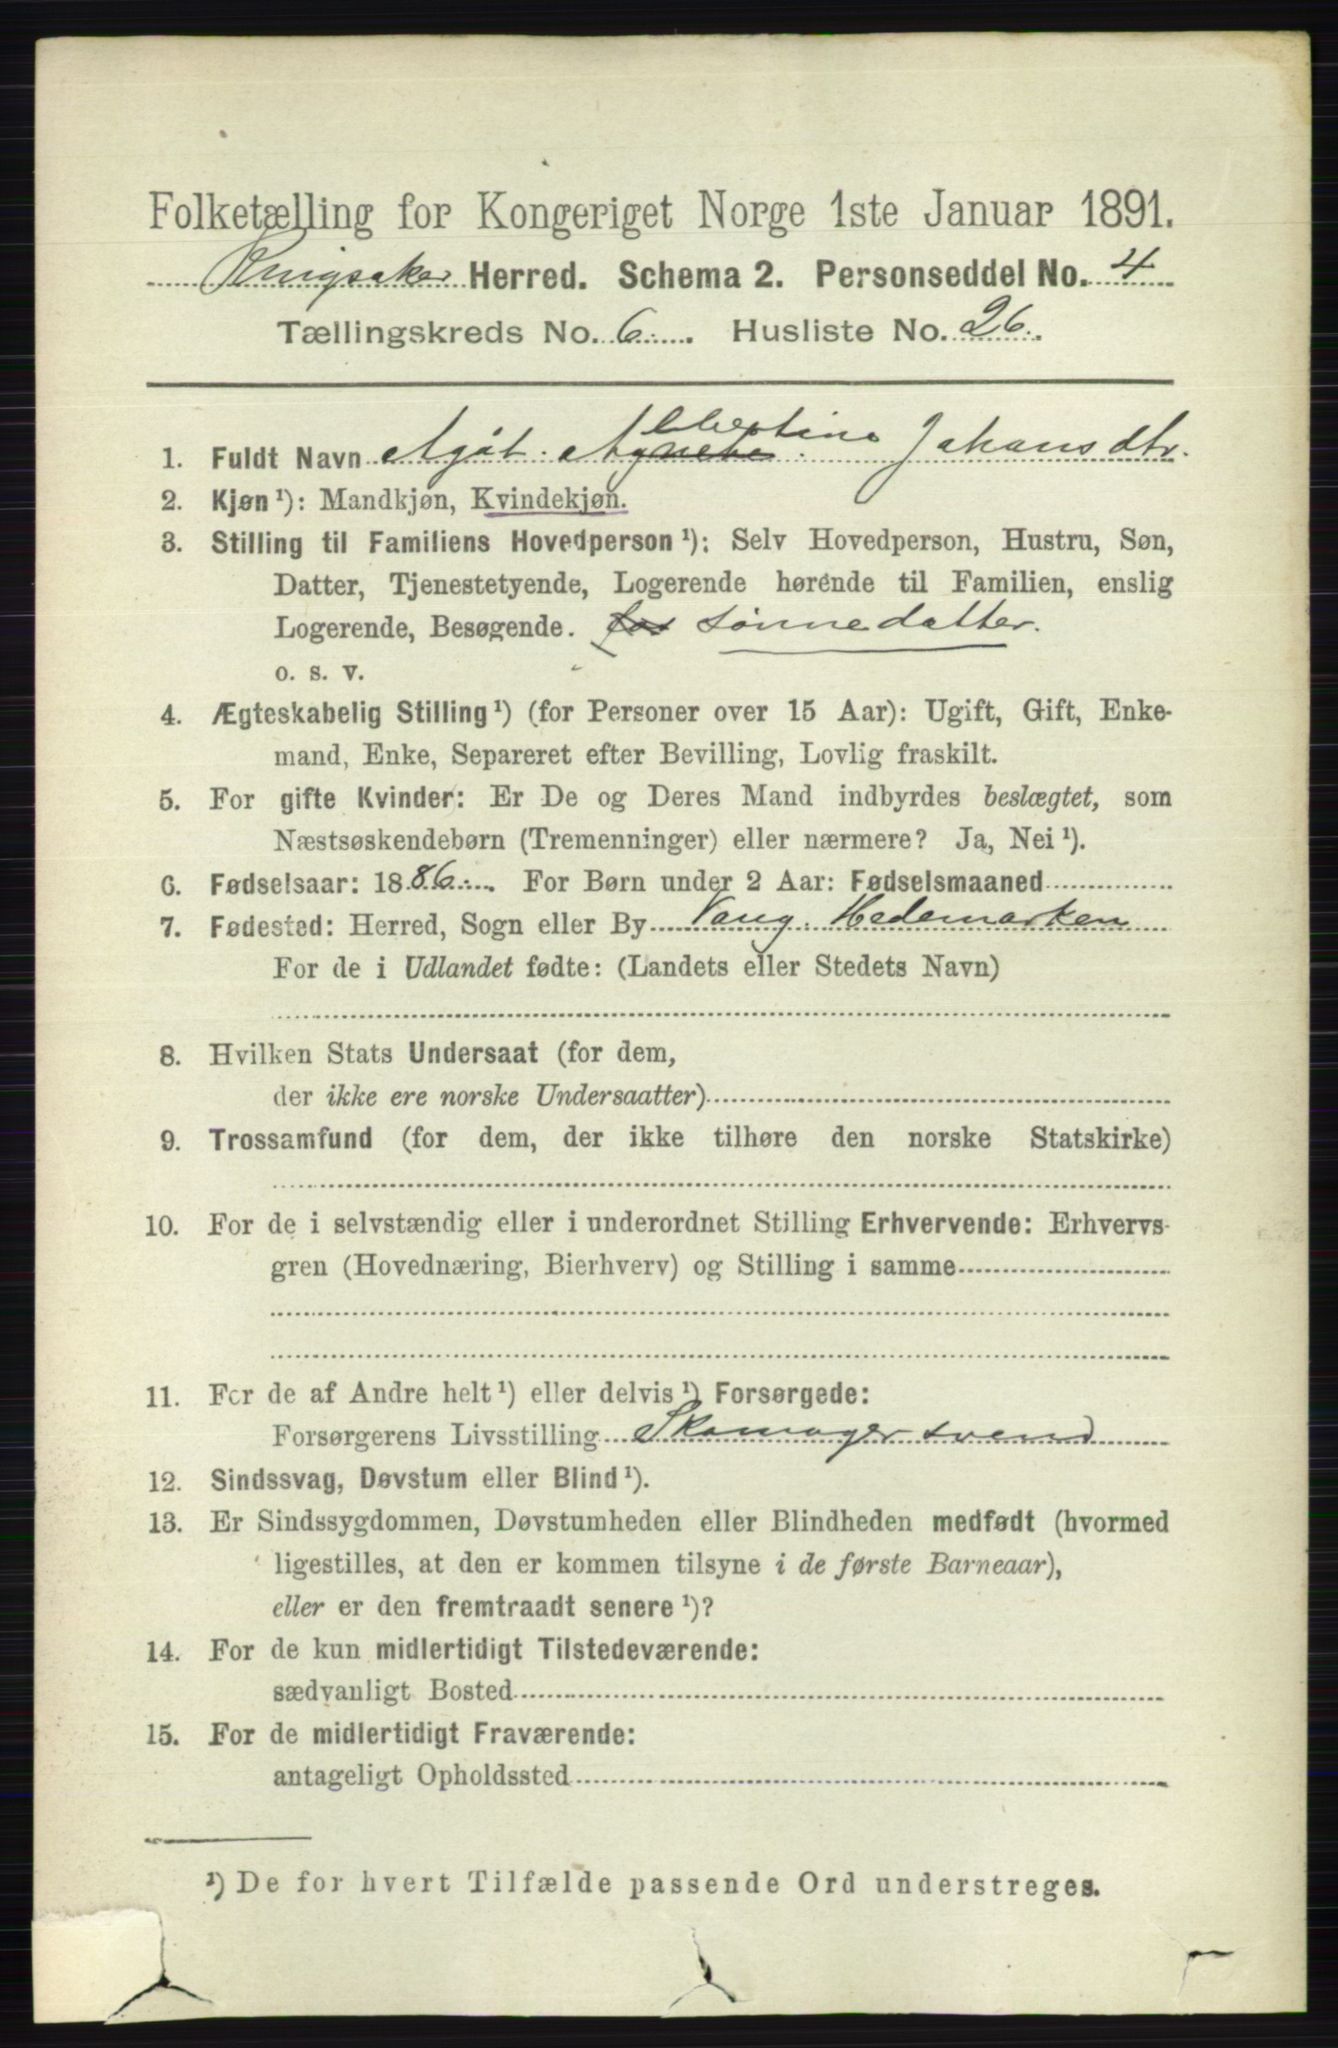 Folketælling for Kongeriget Norge 1ste Januar 1891.
Ringsaker Herred. Schema 2. Personseddel No. 4
Tællingskreds No. 6. Husliste No. 26.
1. Fuldt Navn Agöt. Albertine Johansdtr.
2. Kjøn ¹): Mandkjøn, Kvindekjøn.
3. Stilling til Familiens Hovedperson ¹): Selv Hovedperson, Hustru, Søn,
Datter, Tjenestetyende, Logerende hørende til Familien, enslig
Logerende, Besøgende. sønnedatter.
o. s. v.
4. Ægteskabelig Stilling ¹) (for Personer over 15 Aar): Ugift, Gift, Enke-
mand, Enke, Separeret efter Bevilling, Lovlig fraskilt.
5. For gifte Kvinder: Er De og Deres Mand indbyrdes beslægtet, som
Næstsøskendebørn (Tremenninger) eller nærmere? Ja, Nei ¹).
6. Fødselsaar: 1886. For Børn under 2 Aar: Fødselsmaaned
7. Fødested: Herred, Sogn eller By Vang. Hedemarken
For de i Udlandet fødte: (Landets eller Stedets Navn)
8. Hvilken Stats Undersaat (for dem,
der ikke ere norske Undersaatter)
9. Trossamfund (for dem, der ikke tilhøre den norske Statskirke)
10. For de i selvstændig eller i underordnet Stilling Erhvervende: Erhvervs-
gren (Hovednæring, Bierhverv) og Stilling i samme
11. For de af Andre helt ¹) eller delvis ¹) Forsørgede:
Forsørgerens Livsstilling Skomagersvend
12. Sindssvag, Døvstum eller Blind ¹).
13. Er Sindssygdommen, Døvstumheden eller Blindheden medfødt (hvormed
ligestilles, at den er kommen tilsyne i de første Barneaar),
eller er den fremtraadt senere ¹)?
14. For de kun midlertidigt Tilstedeværende:
sædvanligt Bosted
15. For de midlertidigt Fraværende:
antageligt Opholdssted
¹) De for hvert Tilfælde passende Ord understreges.